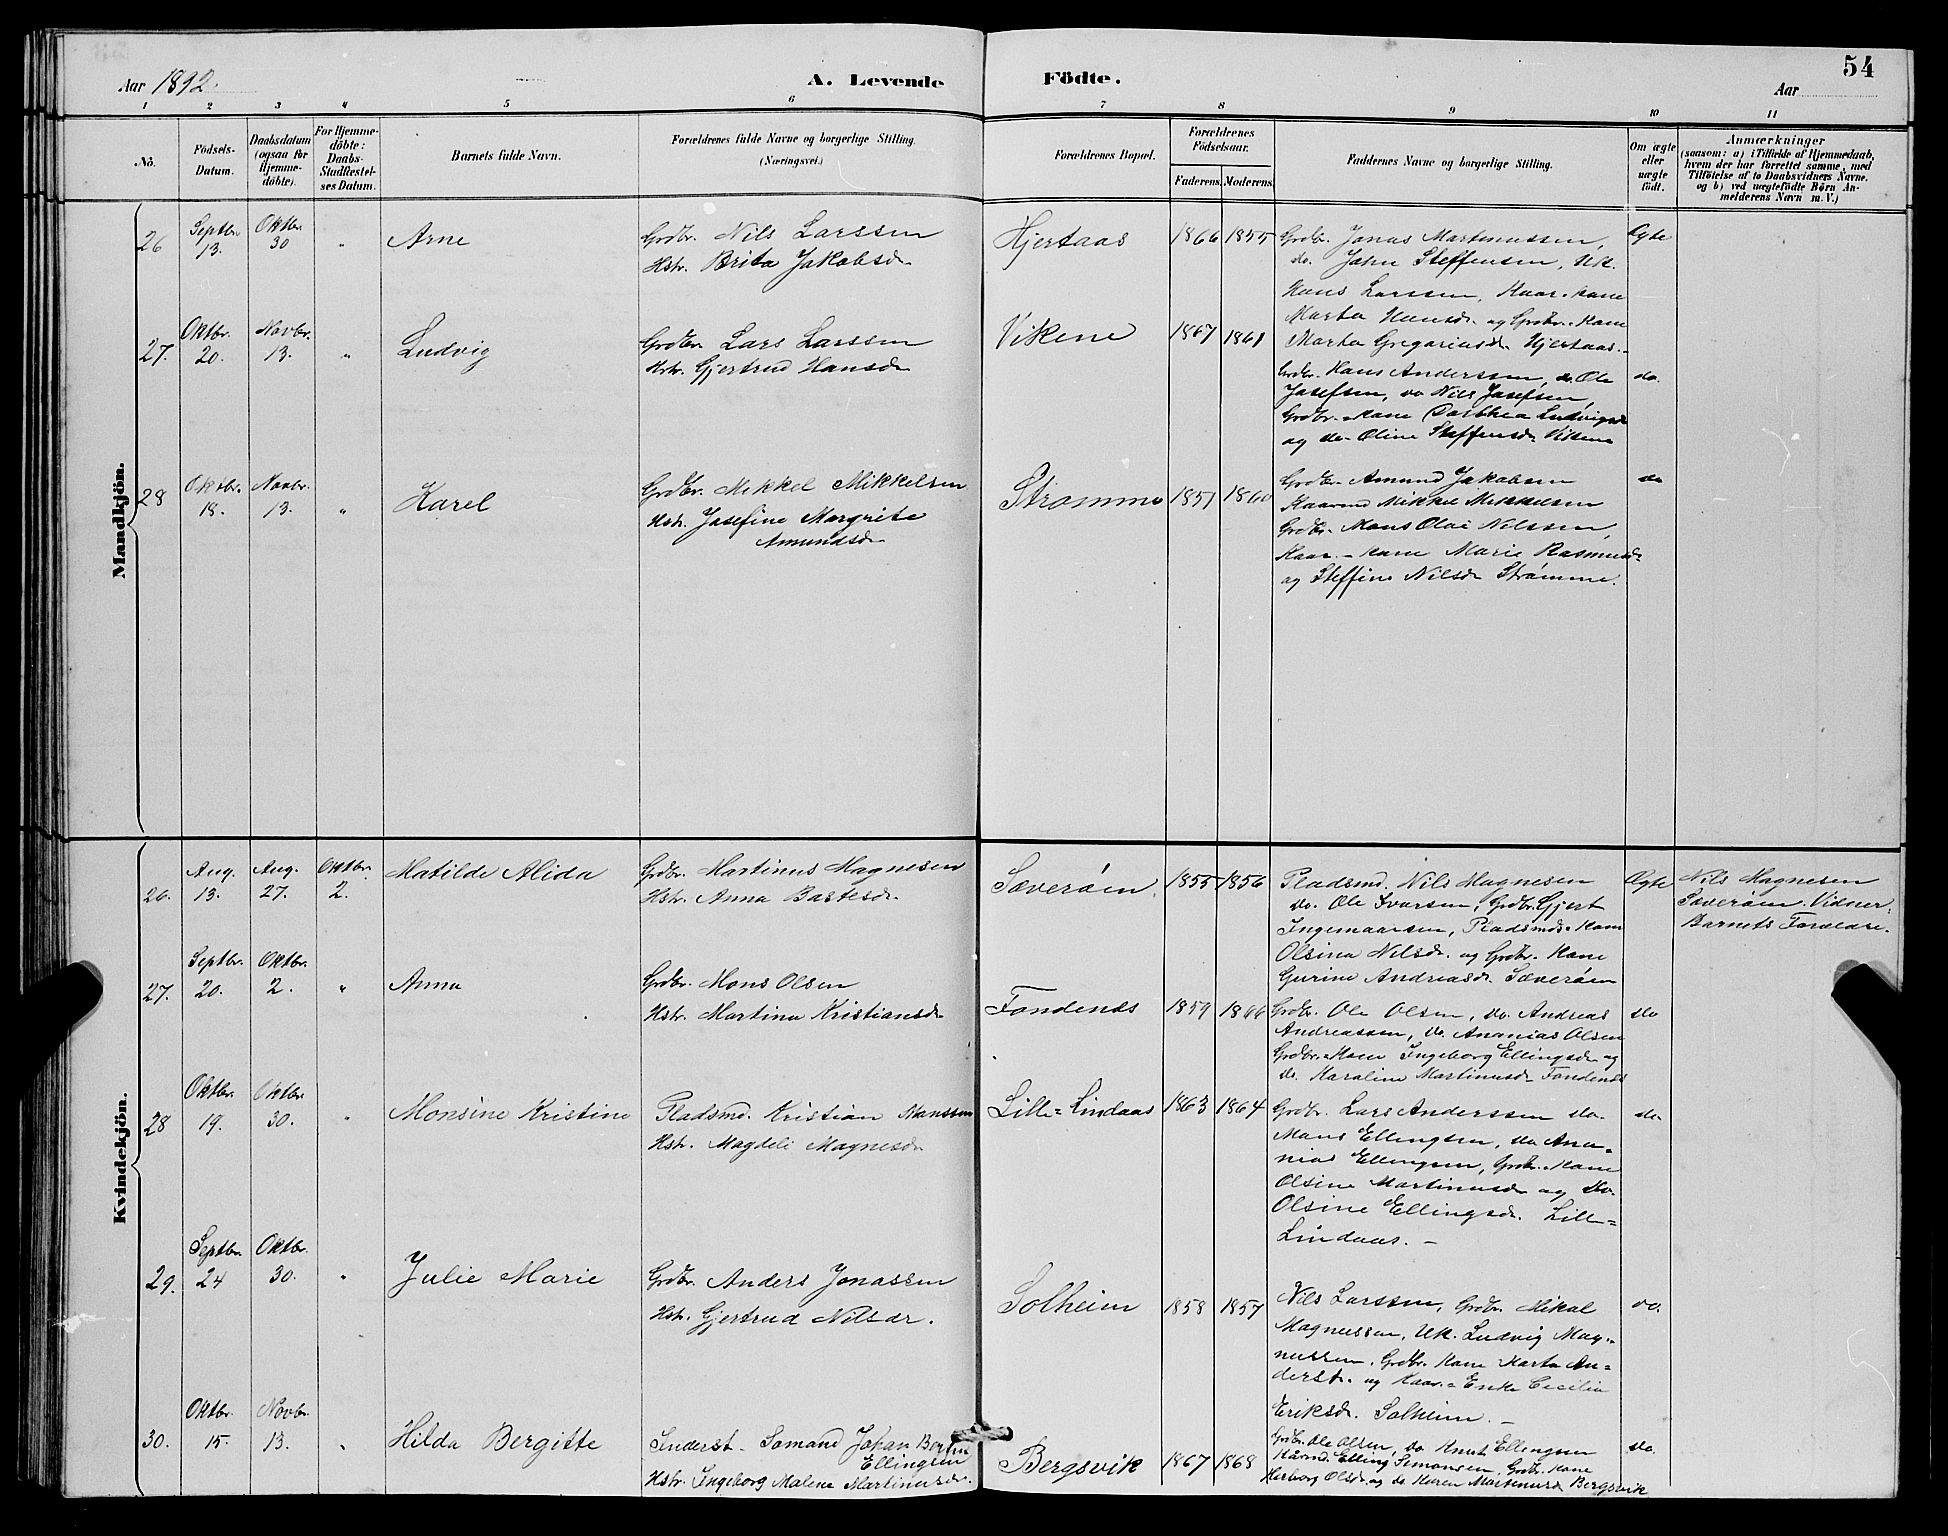 54
Aar 1892.
A. Levende Födte.
Aar
1 2 3 4 5 6 7 8 9 10 11
No.
Födsels-
Datum.
Daabsdatum
(ogsaa for
Hjemme-
döbte).
For Hjemme-
döbte:
Daabs-
Stadfæstel-
ses Datum.
Barnets fulde Navn.
Forældrenes fulde Navne og borgerlige Stilling.
(Næringsvei.)
Forældrenes Bopæl.
Forældrenes
Födselsaar.
Faderens. Moderens.
Faddernes Navne og borgerlige Stilling.
Om ægte
eller
uægte
födt.
Anmærkninger
(saasom: a) i Tilfælde af Hjemmedaab,
hvem der har forrettet samme, med
Tilföielse af to Daabsvidners Navne.
og b) ved uægtefödte Börn An-
melderens Navn m. V.)
Mandkjön.
26
Septbr.
13.
Oktbr.
30
"
Arne
Grdbr. Nils Larssen
Hstr. Brita Jakobsdr
Hjertaas
1866 1855
Grdbr. Jonas Martinussen,
do. John Steffensen, Uk.
Hans Larssen, Kaar-kone
Marta Hansdr. og Grdbr.-Kone
Marta Gregoriusdr. Hjertaas.-
Ægte
27.
Oktbr.
20.
Novbr.
13.
"
Ludvig
Grdbr. Lars Larssen
Hstr. Gjertrud Hansdr
Vikene
1867 1861
Grdbr. Hans Anderssen, do. Ole
Josefsen, do Nils Josefsen,
Grdbr.-Kone Dorthea Ludvigsdr
og do- Oline Steffensdr. Vikene
do.
28
Oktbr.
18.
Novbr.
13.
"
Karel
Grdbr. Mikkel Mikkelsen
Hstr. Josefine Margrete
Amundsdr
Strömme
1851 1860
Grdbr. Amund Jakobsen
Kaarmd Mikkel Mikkelsen
Grdbr. Mons Olai Nilssen,
Kaar.-kone Marie Rasmusdr
og Steffine Nilsdr Strømme.
do
Kvindekjön.
26.
Aug.
13.
Aug.
27.
Oktbr.
2.
Matilde Alida
Grdbr. Martinus Magnesen
Hstr. Anna Bastesdr.
Sæveröen
1855 1856
Pladsmd. Nils Magnesen
do. Ole Ivarsen, Grdbr. Gjert
Ingemaarsen, Pladsmds-Kone
Olsina Nilsdr. og Grdbr. Kone
Gurine Andreasdr. Sæveröen
Ægte
Nils Magnesen
Sæveröen. Vidner:
Barnets Forældre.
27.
Septbr.
20.
Oktbr.
2.
"
Anna
Grdbr. Mons Olsen
Hstr. Martina Kristiansdr
Fondenes
1859 1866
Grdbr. Ole Olsen, do. Andreas
Andreassen, do. Ananias Olsen
Grdbr.-Kone Ingeborg Ellingsdr og
do. Karoline Martinusdr Fondenes
do
28
Oktbr.
19.
Oktbr.
30.
"
Monsine Kristine
Pladsmd. Kristian Monssen
Hstr. Magdeli Magnesdr
Lille=Lindaas
1863 1864
Grdbr. Lars Anderssen do.
Mons Ellingsen, do Ana-
nias Ellingsen, Grdbr.-Kone
Olsine Martinusdr og do.
Olsine Ellingsdr. Lille=
Lindaas. -
do
29.
Septbr.
24
Oktbr.
30.
"
Julie Marie
Grdbr. Anders Jonassen
Hstr. Gjertrud Nilsdr.
Solheim
1858 1857
Nils Larssen, Grdbr. Mikal
Magnussen, Uk. Ludvig Mag-
nussen. Grdbr. Kone Marta An=
dersdr. og Kaar.-Enke Cecilia
Eriksdr. Solheim. -
do.
30.
Oktbr.
15.
Novbr.
13.
"
Hilda Bergitte
Inderst. Sömand Johan Bertin
Ellingsen
Hstr. Ingeborg Malene Martinusdr.
Bergsvik
1867 1868
Grdbr. Ole Olsen, do Knut Ellingsen
Kårmd. Elling Simonsen, Grdbr. Kone
Herborg Olsdr. og do Karen Martinusdr Bergsvik
do.